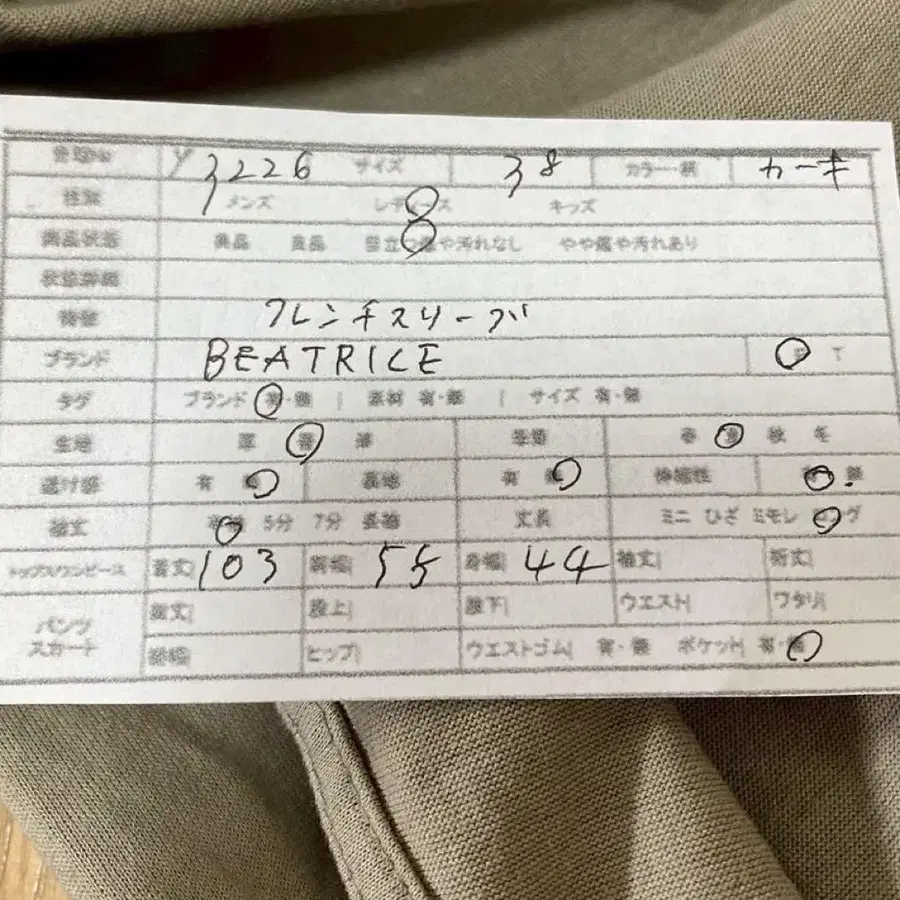 管理No Y3226 サイズ 38 カラー・柄 カーキ
性別 メンズ レディース キッズ
商品状態 美品 良品 目立つ傷や汚れなし やや傷や汚れあり
状態詳細
特徴 フレンチスリーブ
ブランド BEATRICE T
タグ ブランド 有・無 | 素材 有・無 | サイズ 有・無
生地 厚 普 薄 季節 春 夏 秋 冬
透け感 有 裏地 有 伸縮性 無
袖丈 5分 7分 長袖 丈長 ミニ ひざ ミモレ ロング
トップス/ワンピース 着丈| 103 肩幅| 55 身幅| 44 袖丈| 裄丈|
パンツ スカート 総丈| 股上| 股下| ウエスト| ワタリ|
裾幅 ヒップ| ウエストゴム| 有・無 ポケット| 有・無